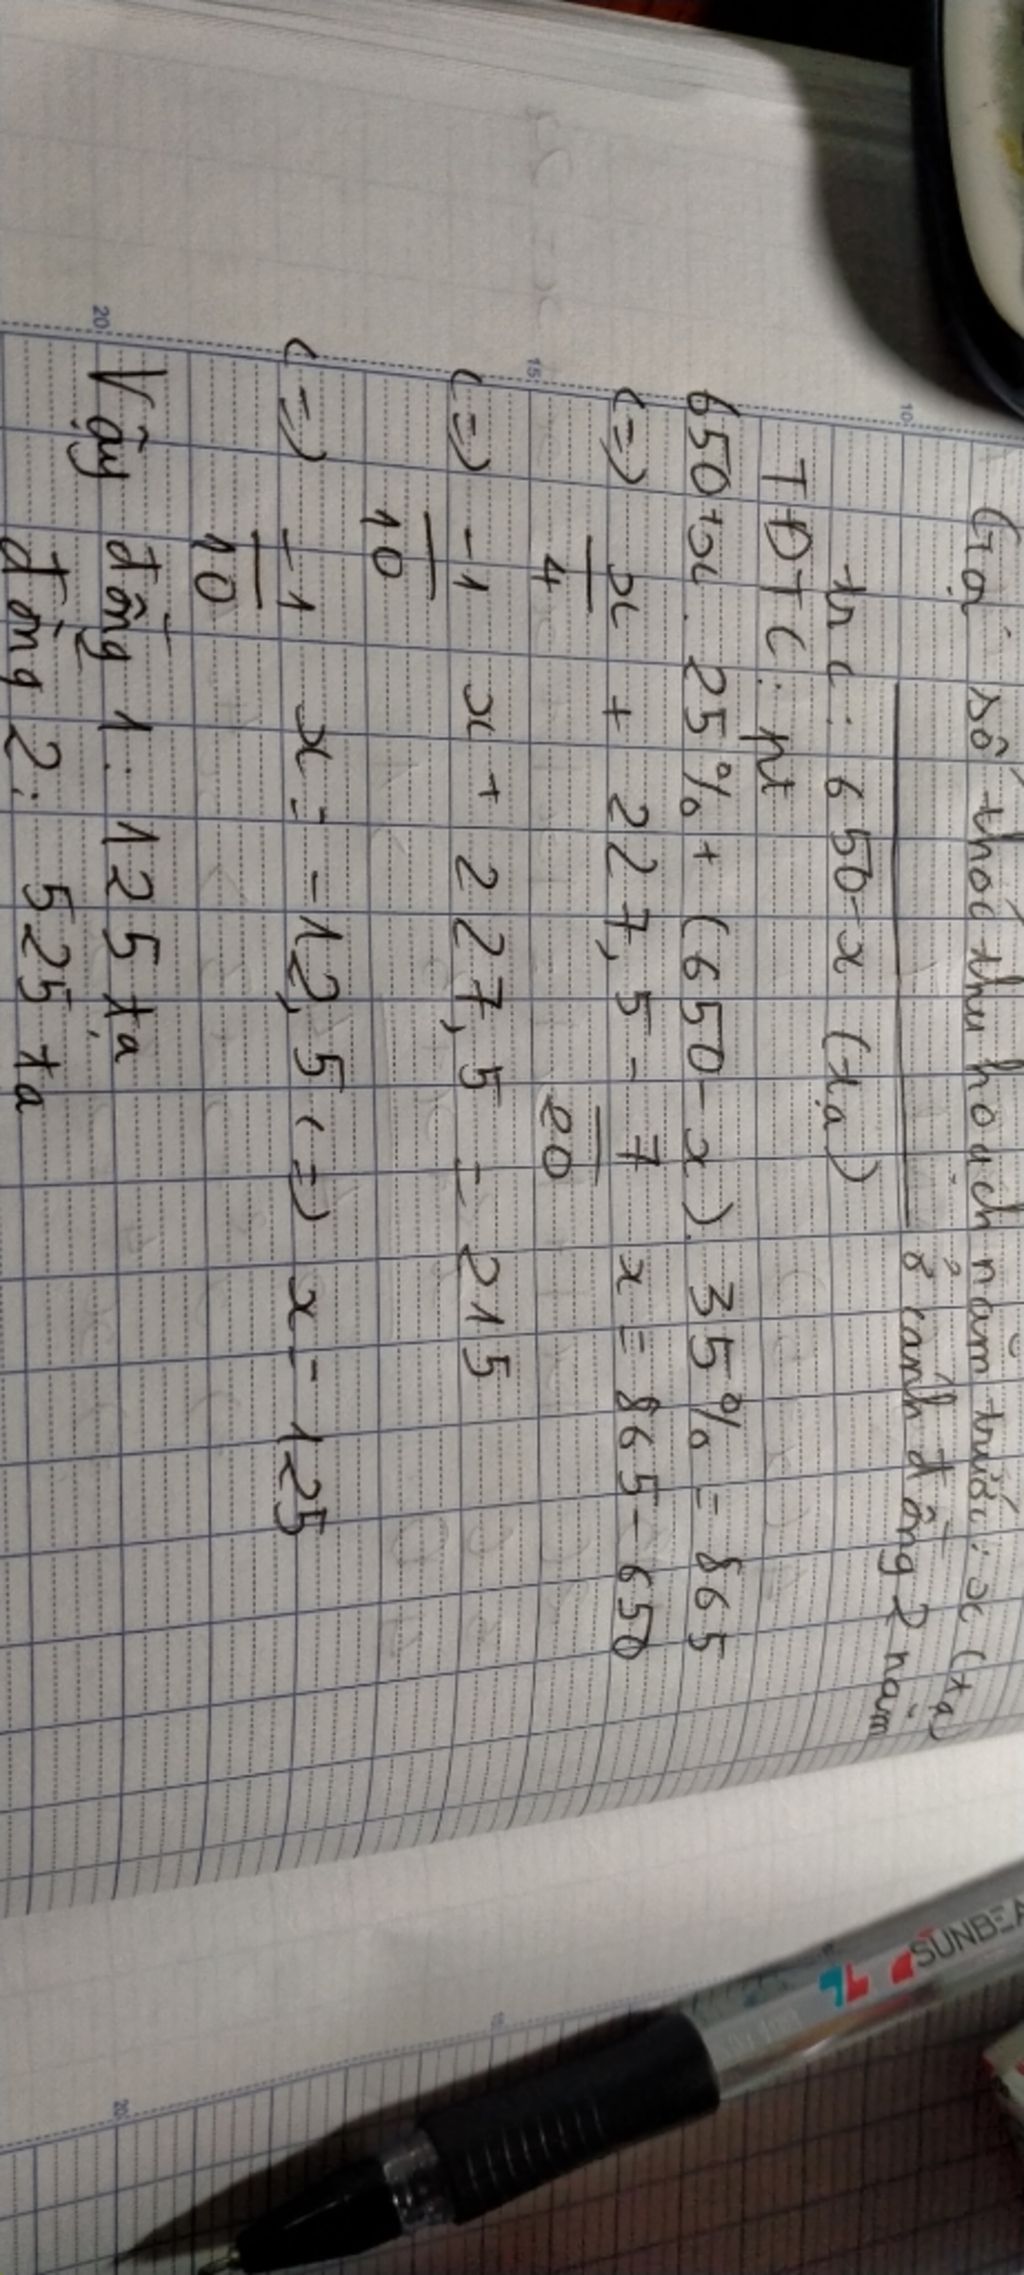 Gọi số thóc thu hoạch năm trước: x (tạ)
ở cánh đồng 2 năm
trc: 650-x (tạ)
TĐTC: pt
650+x. 25% + (650-x). 35% = 865
(=) x/4 + 227,5 - 7/20 x = 865-650
(=) -1/10 x + 227,5 = 215
(=) -1/10 x = -12,5 (=) x = 125
Vậy đồng 1: 125 tạ
đồng 2: 525 tạ
SUNBEA
TL
10
15
20
20